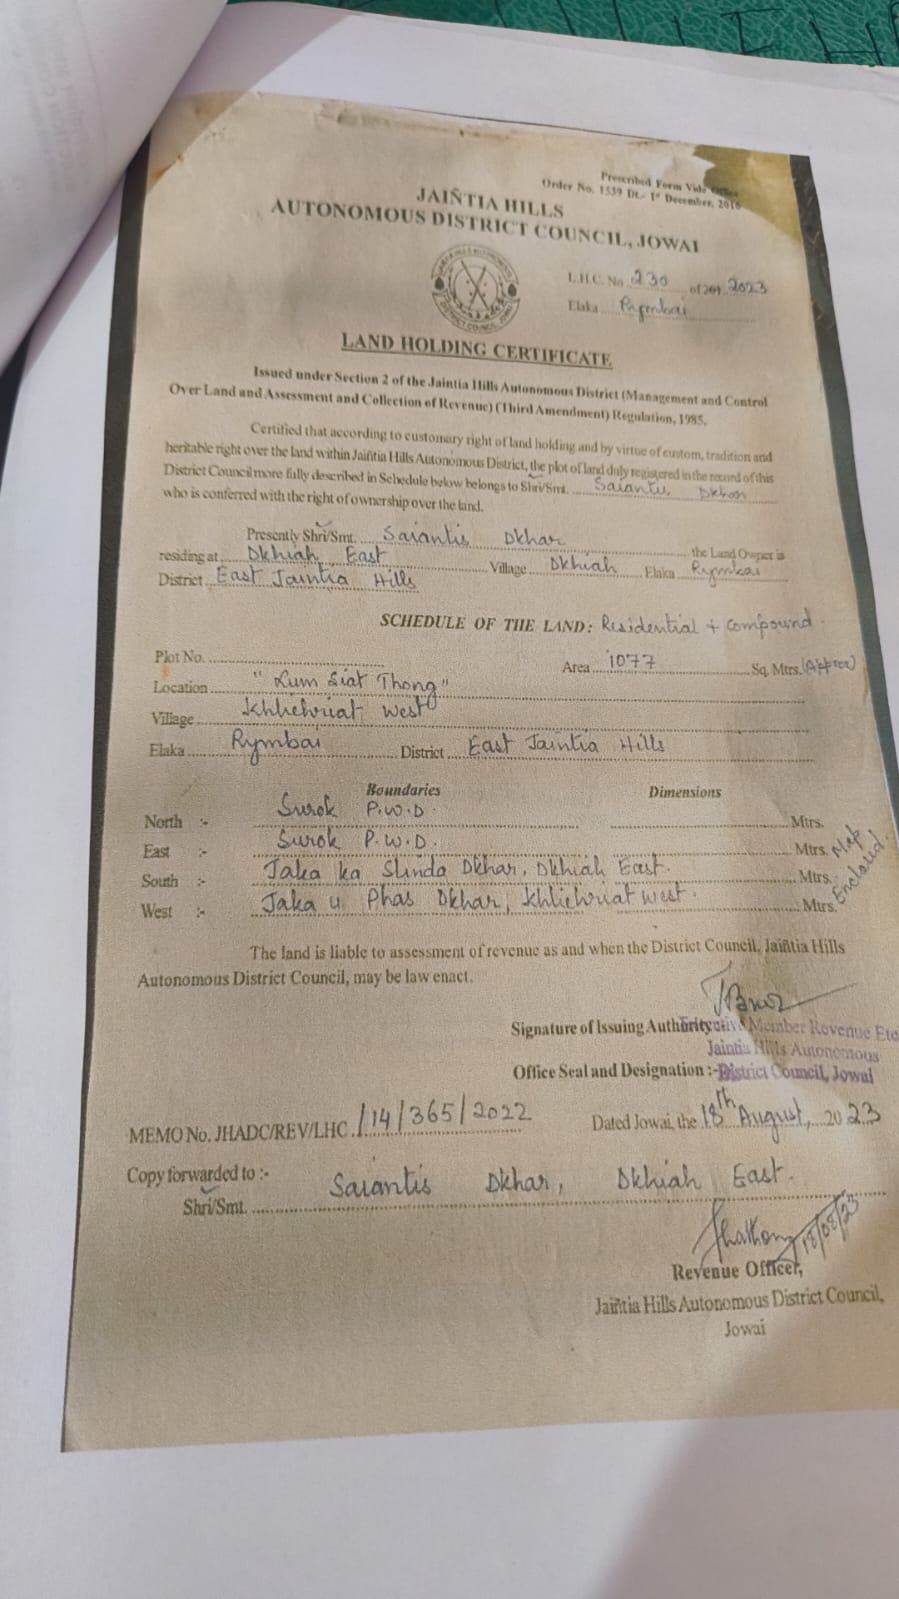 Prescribed Form Vide Office
Order No. 1539 Dt.- 1st December, 2016
JAIÑTIA HILLS
AUTONOMOUS DISTRICT COUNCIL, JOWAI
L.H.C. No. 230 of 201 2023
Elaka Rymbai
LAND HOLDING CERTIFICATE
Issued under Section 2 of the Jaintia Hills Autonomous District (Management and Control
Over Land and Assessment and Collection of Revenue) (Third Amendment) Regulation, 1985.
Certified that according to customary right of land holding and by virtue of custom, tradition and
heritable right over the land within Jaiñtia Hills Autonomous District, the plot of land duly registered in the record of this
District Council more fully described in Schedule below belongs to Shri/Smt. Saiantis Dkhar
who is conferred with the right of ownership over the land.
Presently Shri/Smt. Saiantis Dkhar the Land Owner is
residing at Dkhiah East Village Dkhiah Elaka Rymbai
District East Jaintia Hills
SCHEDULE OF THE LAND: Residential + Compound
Plot No. Area 1077 Sq. Mtrs. (Approx)
Location "Lum Siat Thong"
Village Khliehriat West
Elaka Rymbai District East Jaintia Hills
Boundaries Dimensions
North :- Surok P.W.D. Mtrs.
East :- Surok P.W.D. Mtrs.
South :- Jaka ka Slinda Dkhar, Dkhiah East. Mtrs.
West :- Jaka u Phas Dkhar, Khliehriat West. Mtrs.
Map Enclosed
The land is liable to assessment of revenue as and when the District Council, Jaiñtia Hills
Autonomous District Council, may be law enact.
Signature of Issuing Authority Executive Member Revenue Etc
Jaintia Hills Autonomous
Office Seal and Designation :- District Council, Jowai
MEMO No. JHADC/REV/LHC /14/365/2022 Dated Jowai, the 18th August, 2023
Copy forwarded to :-
Shri/Smt. Saiantis Dkhar, Dkhiah East.
18/08/23
Revenue Officer,
Jaiñtia Hills Autonomous District Council,
Jowai